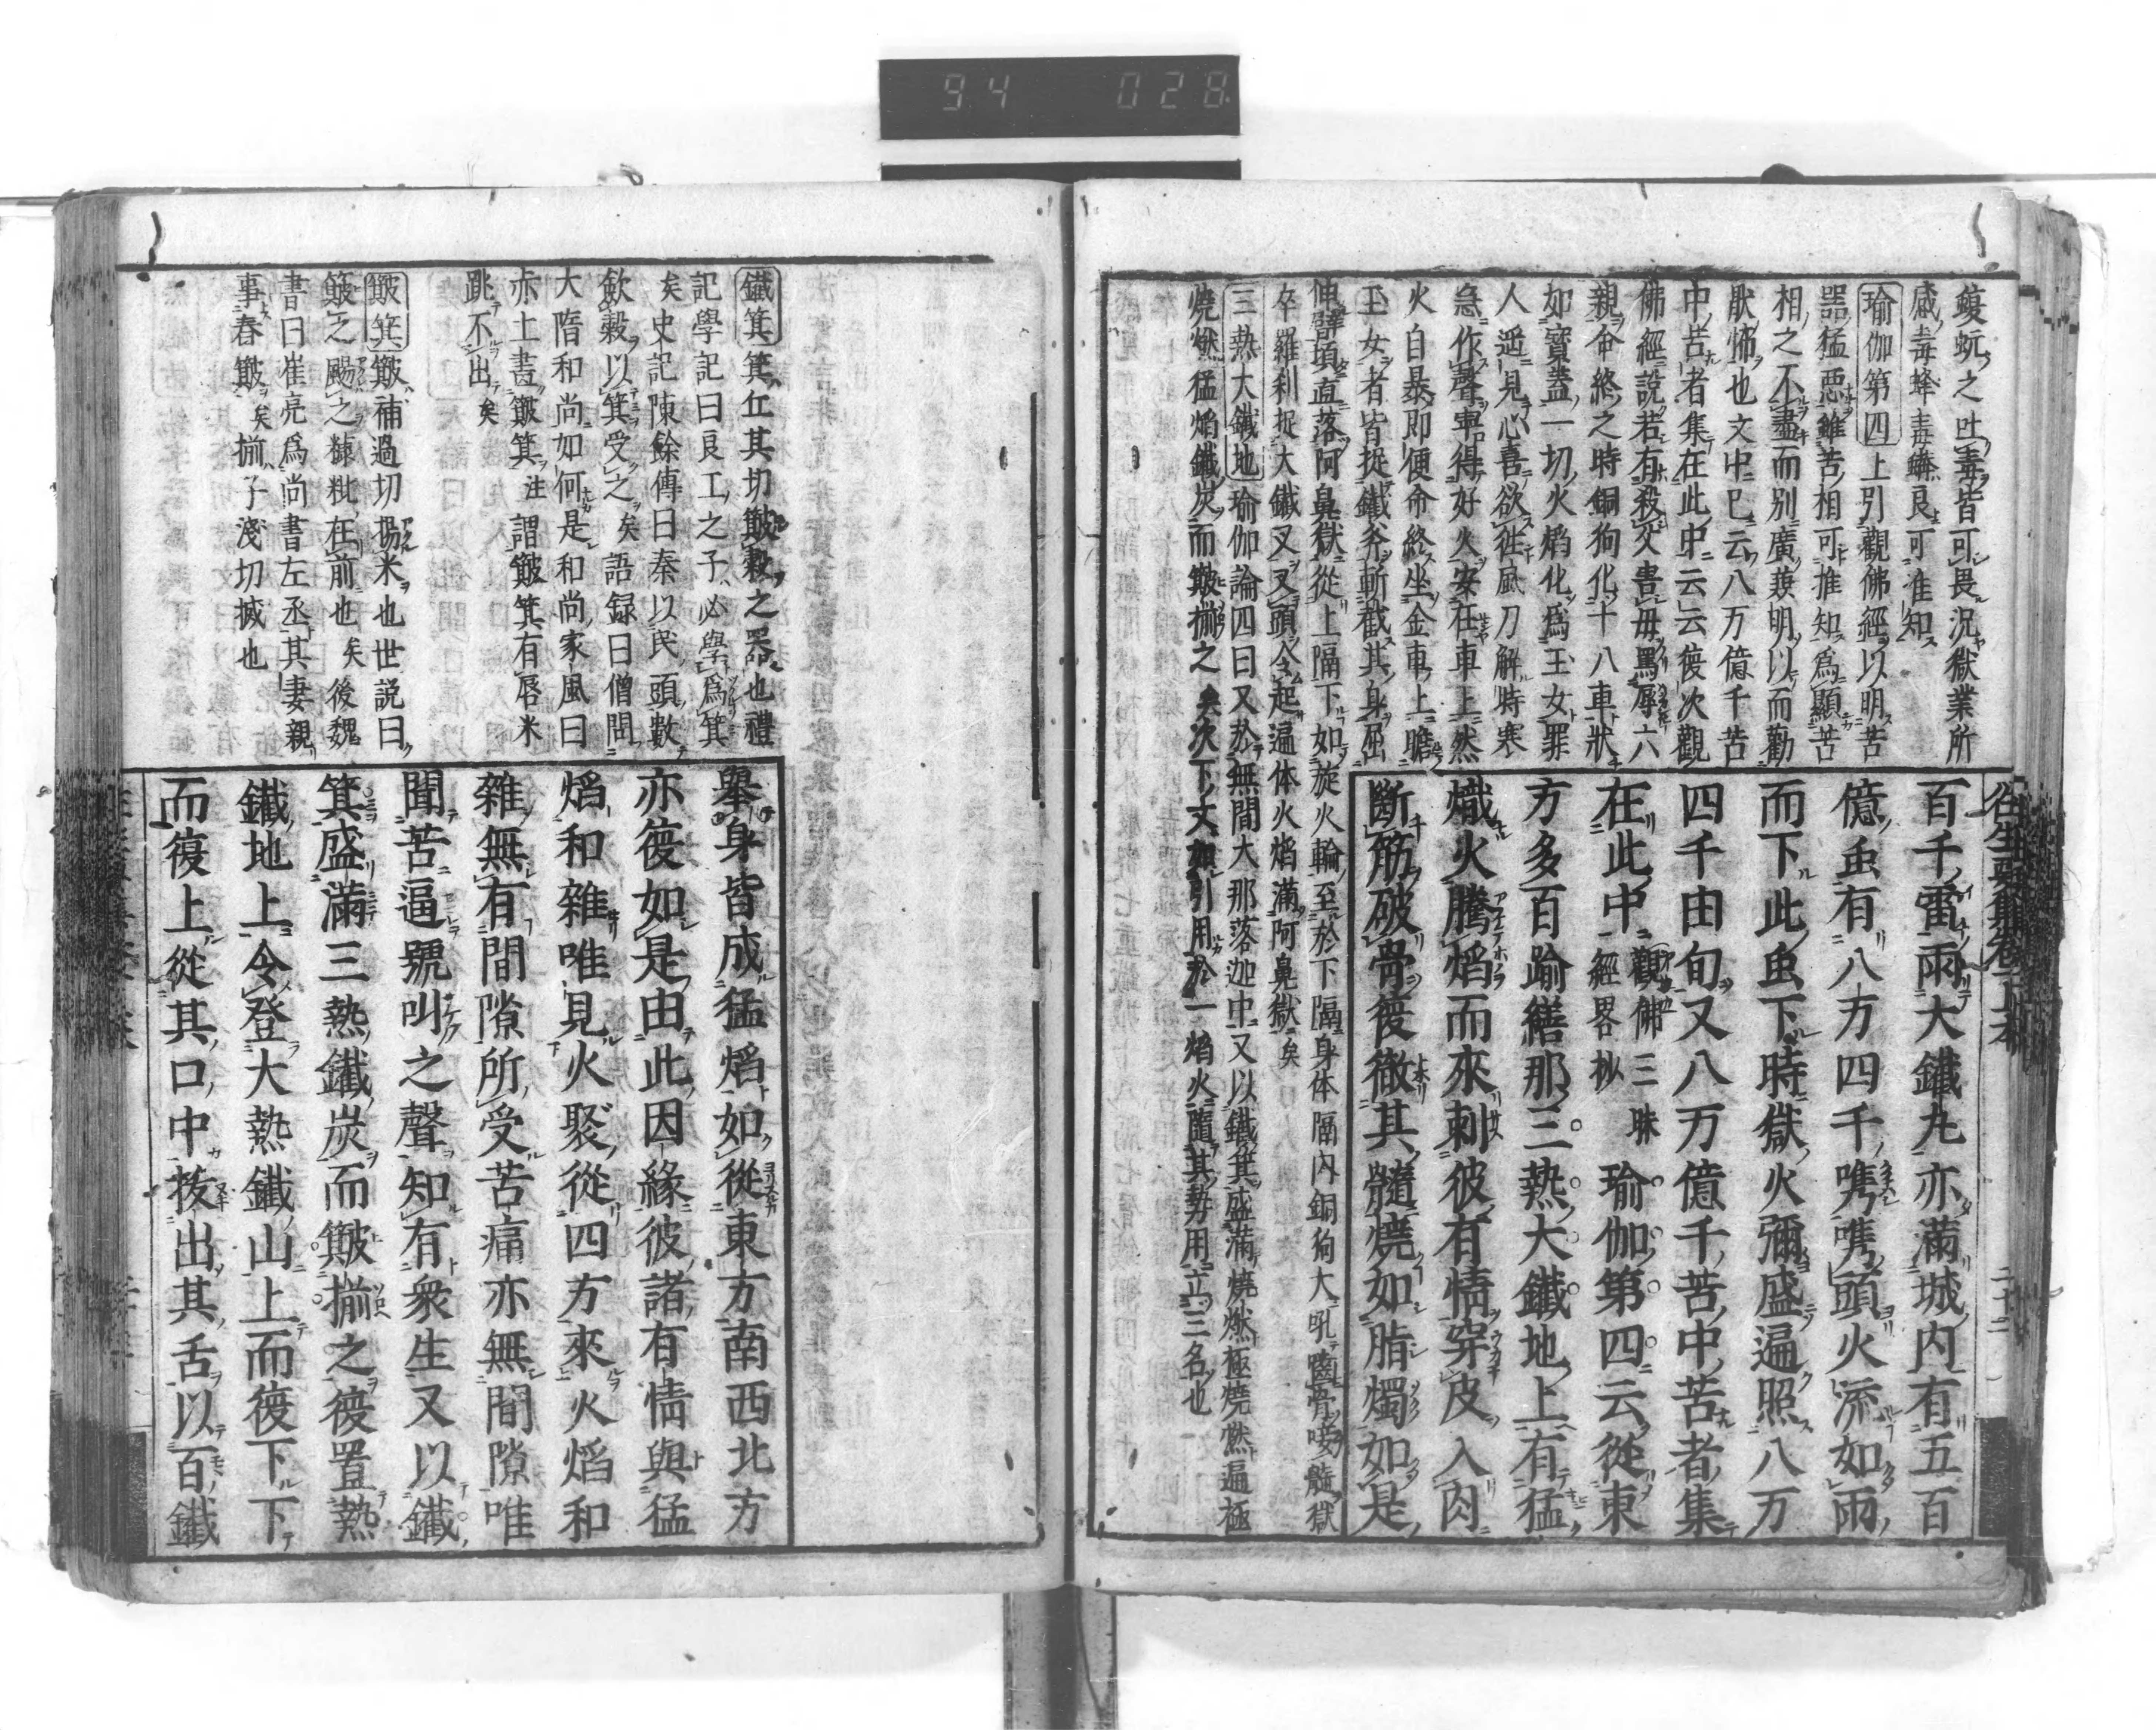 94 028
蝮蚖之吐毒皆可畏況獄業所
感毒蜂毒蟒良可准知
瑜伽第四 上引觀佛經以明苦
器猛惡雖苦相可推知爲顯苦
相之不盡而別廣兼明以而勸
厭怖也文中已云八万億千苦
中苦者集在此中云云復次觀
佛經說若有殺父害母罵辱六
親命終之時銅狗化十八車狀
如寳蓋一切火焰化爲玉女罪
人遥見心喜欲往風刀解時寒
急作聲寧得好火安在車上然
火自暴即便命終坐金車上瞻
玉女者皆捉鐵斧斬截其身屈
伸臂頃直落阿鼻獄從上隔下如旋火輪至於下隔身体隔内銅狗大吼齧骨唼髓獄
卒羅刹捉大鐵叉叉頭令起遍体火焰滿阿鼻獄矣
三熱大鐵地 瑜伽論四曰又於無間大那落迦中又以鐵箕盛滿燒燃極燒燃遍極
燒燃猛焰鐵炭而簸揃之矣次下文如引用於一焰火隨其勢用立三名也
往生要集卷上本 二十二
百千雷雨大鐵丸亦滿城内有五百
億虫有八万四千㗲㗲頭火流如雨
而下此虫下時獄火彌盛遍照八万
四千由旬又八万億千苦中苦者集
在此中 觀佛三昧經畧抄 瑜伽第四云從東
方多百踰繕那三熱大鐵地上有猛
熾火騰焰而來刺彼有情穿皮入肉
斷筋破骨復徹其髓燒如脂燭如是
鐵箕 箕仕其切簸穀之器也禮
記學記曰良工之子必學爲箕
矣史記陳餘傳曰秦以民頭數
歛穀以箕受之矣語録曰僧問
大隋和尚如何是和尚家風曰
赤土畫簸箕注謂簸箕有唇米
跳不出矣
簸箕 簸補過切揚米也世説曰
簸之颺之糠粃在前也矣後魏
書曰崔亮爲尚書左丞其妻親
事舂簸矣揃子淺切搣也
舉身皆成猛焰如從東方南西北方
亦復如是由此因緣彼諸有情與猛
焰和雜唯見火聚從四方來火焰和
雜無有間隙所受苦痛亦無間隙唯
聞苦逼號叫之聲知有衆生又以鐵
箕盛滿三熱鐵炭而簸揃之復置熱
鐵地上令登大熱鐵山上而復下下
而復上從其口中拔出其舌以百鐵